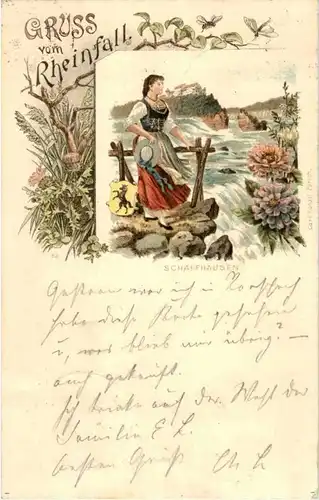 GRUSS
vom
Rheinfall.
SCHAFFHAUSEN
Gestern war ich in Rorschach
habe diese Karte gesehen
u, was blieb mir übrig? —
auch gekauft.
Ich trinke auf das Wohl der
Familie E. L.
besten Gruß